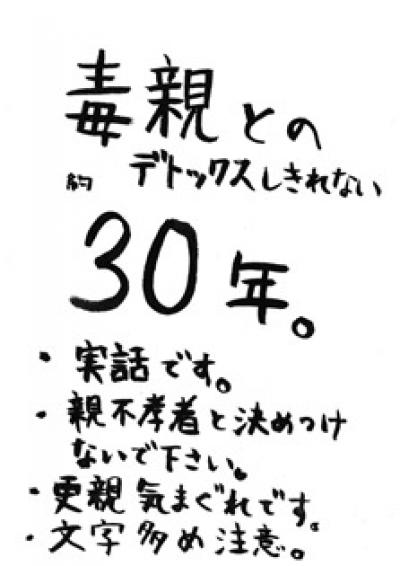 毒親との
デトックスしきれない
約
30年。
・実話です。
・親不孝者と決めつけ
ないで下さい。
・更親気まぐれです。
・文字多め注意。